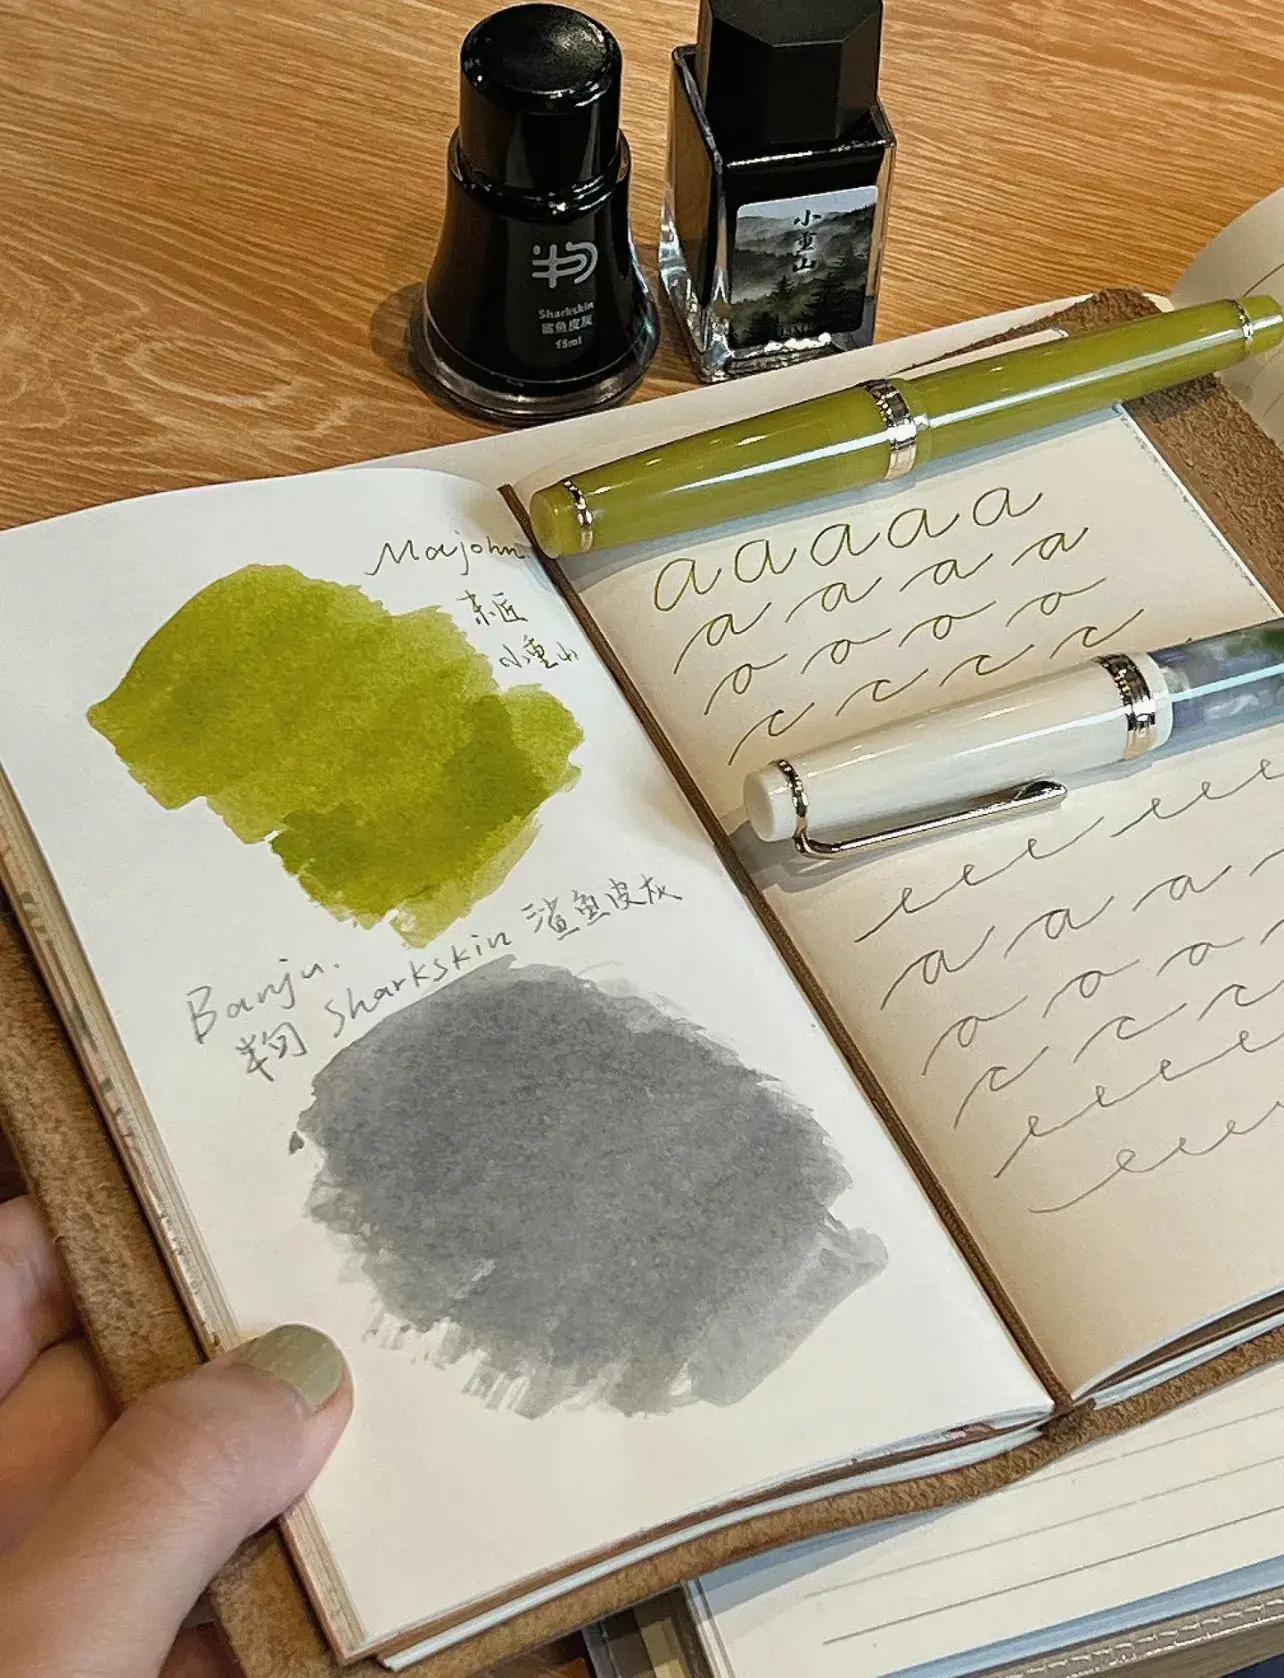 Sharkskin
鲨鱼皮灰
15ml
小重山
Majohn
末匠
小重山
Banju.
半句 Sharkskin 鲨鱼皮灰
a a a a a
a a a a a
o o o o
c c c c
e e e e e e e
a a a
o o o
c c c c
e e e e
e e e e